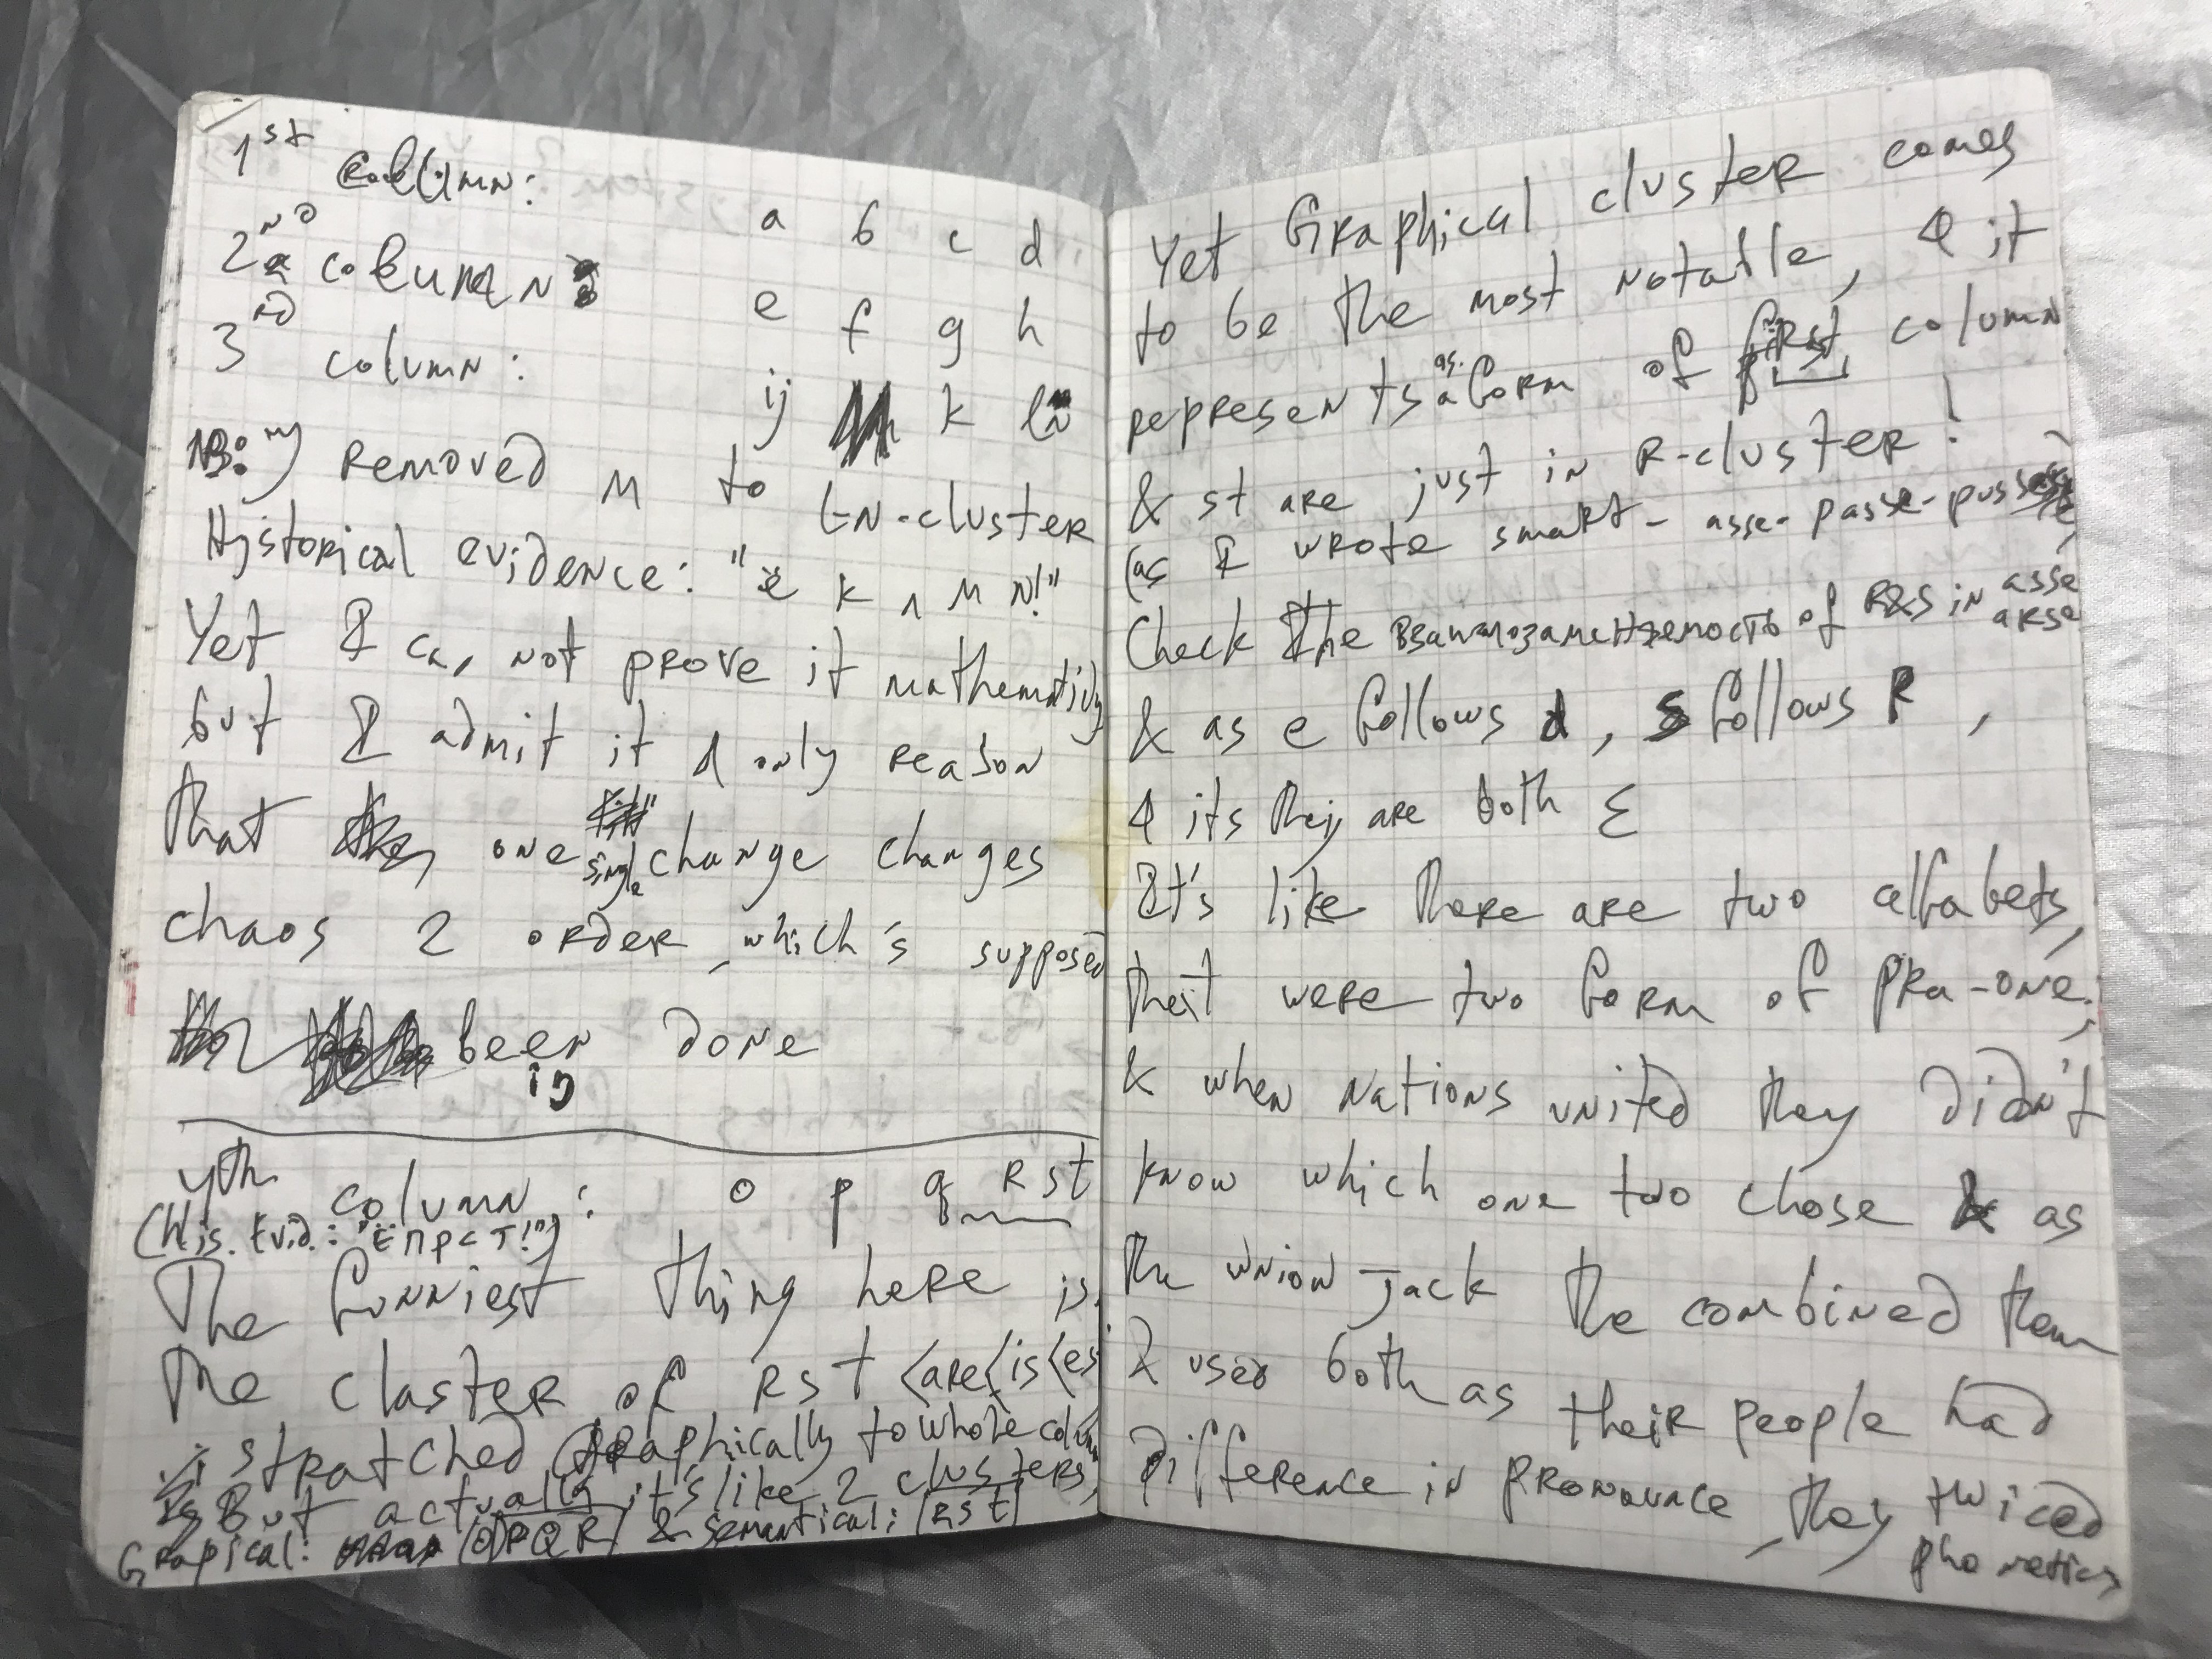 1st column: a b c d
2nd column e f g h
3rd column: ij k ln
NB: my removed M to LN-cluster
Hystorical evidence: "ё к л м н!"
Yet I ca, not prove it mathematicly
but I admit it d only reason
that one single change changes
chaos 2 order, which's supposed
been done
:)
4th column: o p q rst
(His. Evid.: "ёпрст!")
The funniest thing here is,
The cluster of RST (are(is(es
stratched graphically to whole column
But actually it's like 2 clusters,
Grapical: OPQR & Semential: RST
Yet Graphical cluster comes
to be the most notable, & it
represents as a form of first column
& st are just in R-cluster!
(as I wrote smart-asse-passe-pusse,
Check the взаимозаменяемость of R&S in asse arse
& as e follows d, S follows R,
& its they are both Σ
It's like there are two alfabets,
their were two form of pra-one,
& when nations united they didn't
know which one too chose & as
the union jack the combined them
& used both as their people had
difference in pronounce, they twiced
phonetics